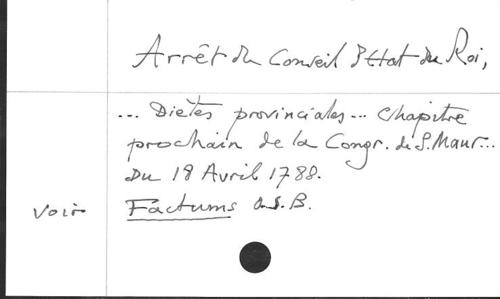 Arrêt du Conseil d'Etat du Roi,
... Diètes provinciales... chapitre
prochain de la Congr. de S. Maur...
Du 18 Avril 1788.
voir Factums O.S.B.